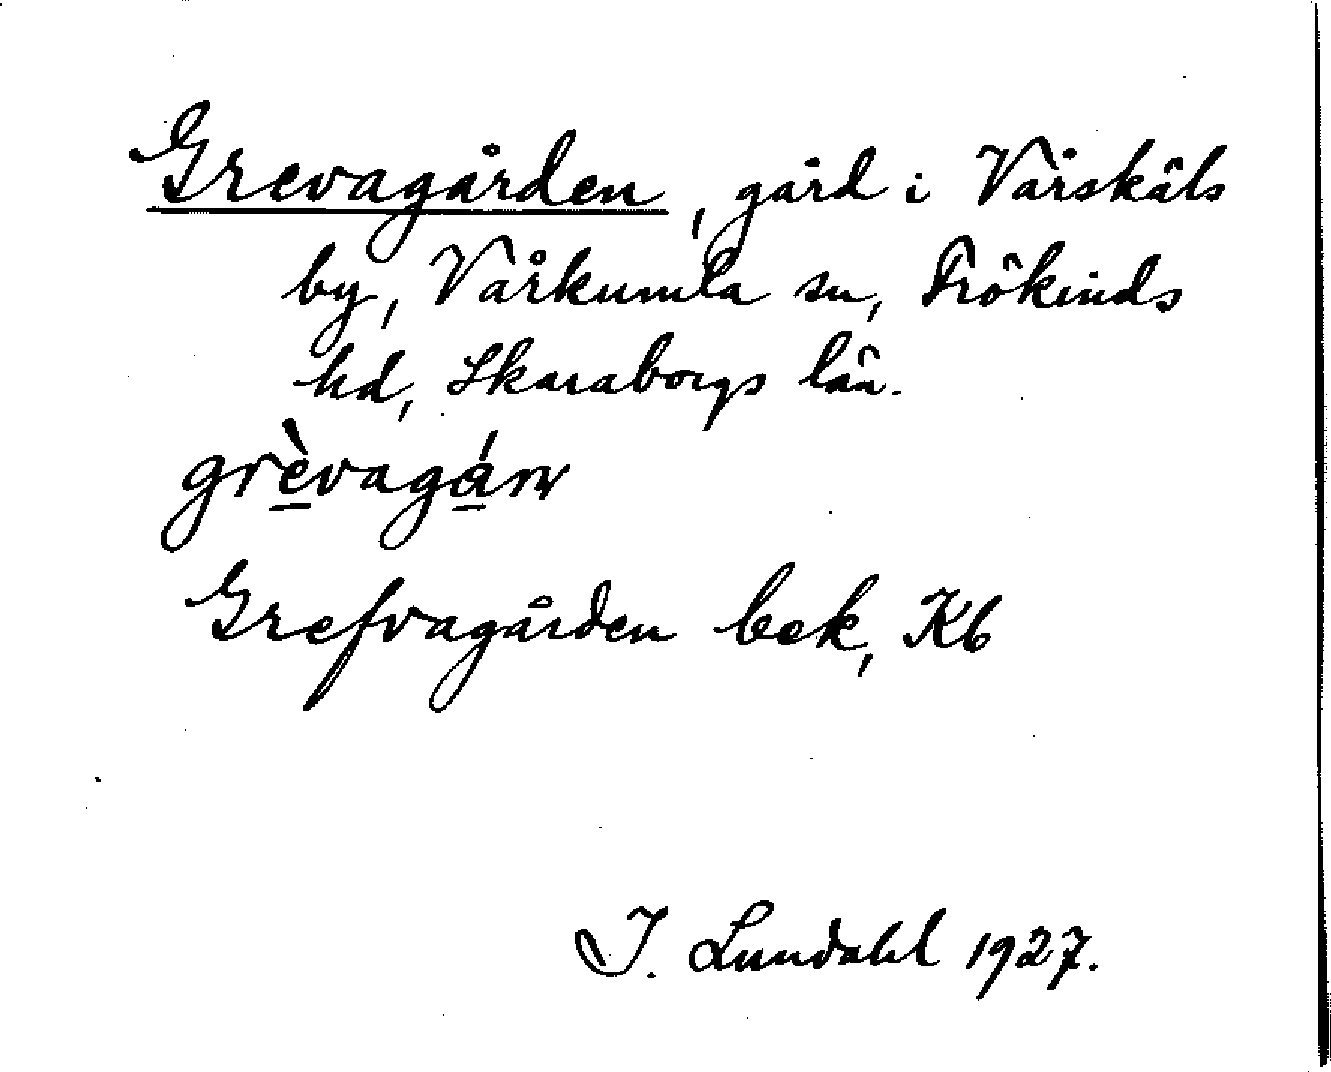 Grevagården, gård i Vårskäls
by, Vårkumla sn, Frökinds
hd, Skaraborgs län.
grèvagáṇ
Grefvagården bek, Kb
I. Lundahl 1927.